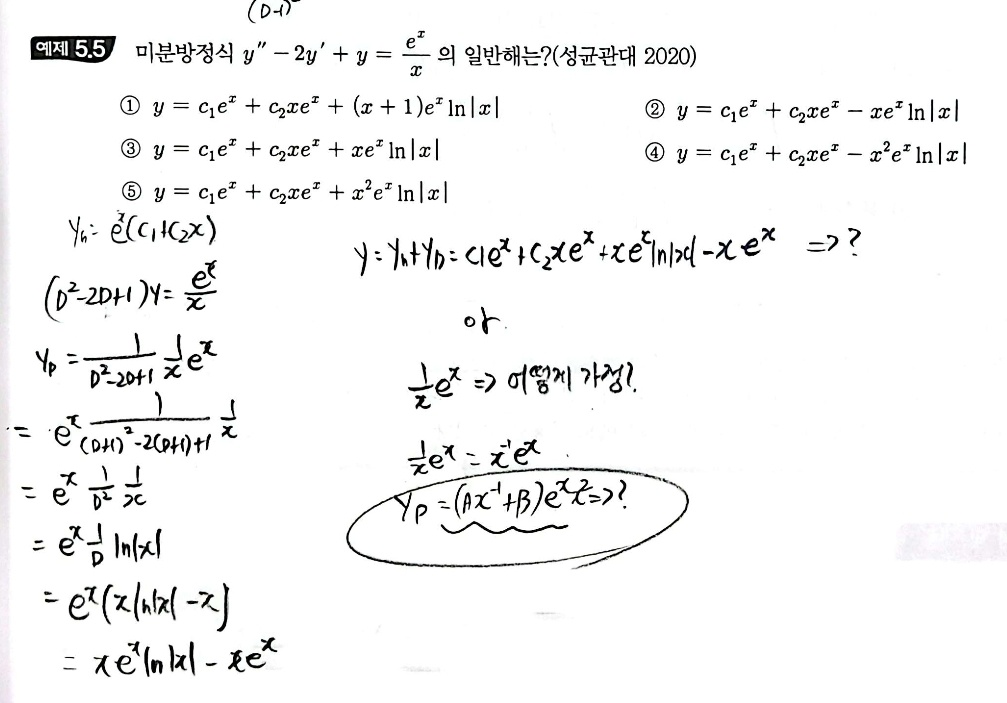 (D-1)²
예제 5.5 미분방정식 y″ − 2y′ + y = eˣ/x 의 일반해는?(성균관대 2020)
① y = c₁eˣ + c₂xeˣ + (x + 1)eˣ ln|x|
② y = c₁eˣ + c₂xeˣ − xeˣ ln|x|
③ y = c₁eˣ + c₂xeˣ + xeˣ ln|x|
④ y = c₁eˣ + c₂xeˣ − x²eˣ ln|x|
⑤ y = c₁eˣ + c₂xeˣ + x²eˣ ln|x|
yₕ = eˣ(c₁+c₂x)
(D²-2D+1)y = eˣ/x
yₚ = 1/(D²-2D+1) 1/x eˣ
= eˣ 1/((D+1)²-2(D+1)+1) 1/x
= eˣ 1/D² 1/x
= eˣ 1/D ln|x|
= eˣ(xln|x| -x)
= xeˣln|x| - xeˣ
y = yₕ+yₚ = c₁eˣ+c₂xeˣ+xeˣln|x|-xeˣ => ?
아
1/x eˣ => 어떻게 가정?
1/x eˣ = x⁻¹eˣ
Yₚ = (Ax⁻¹+B)eˣx² => ?